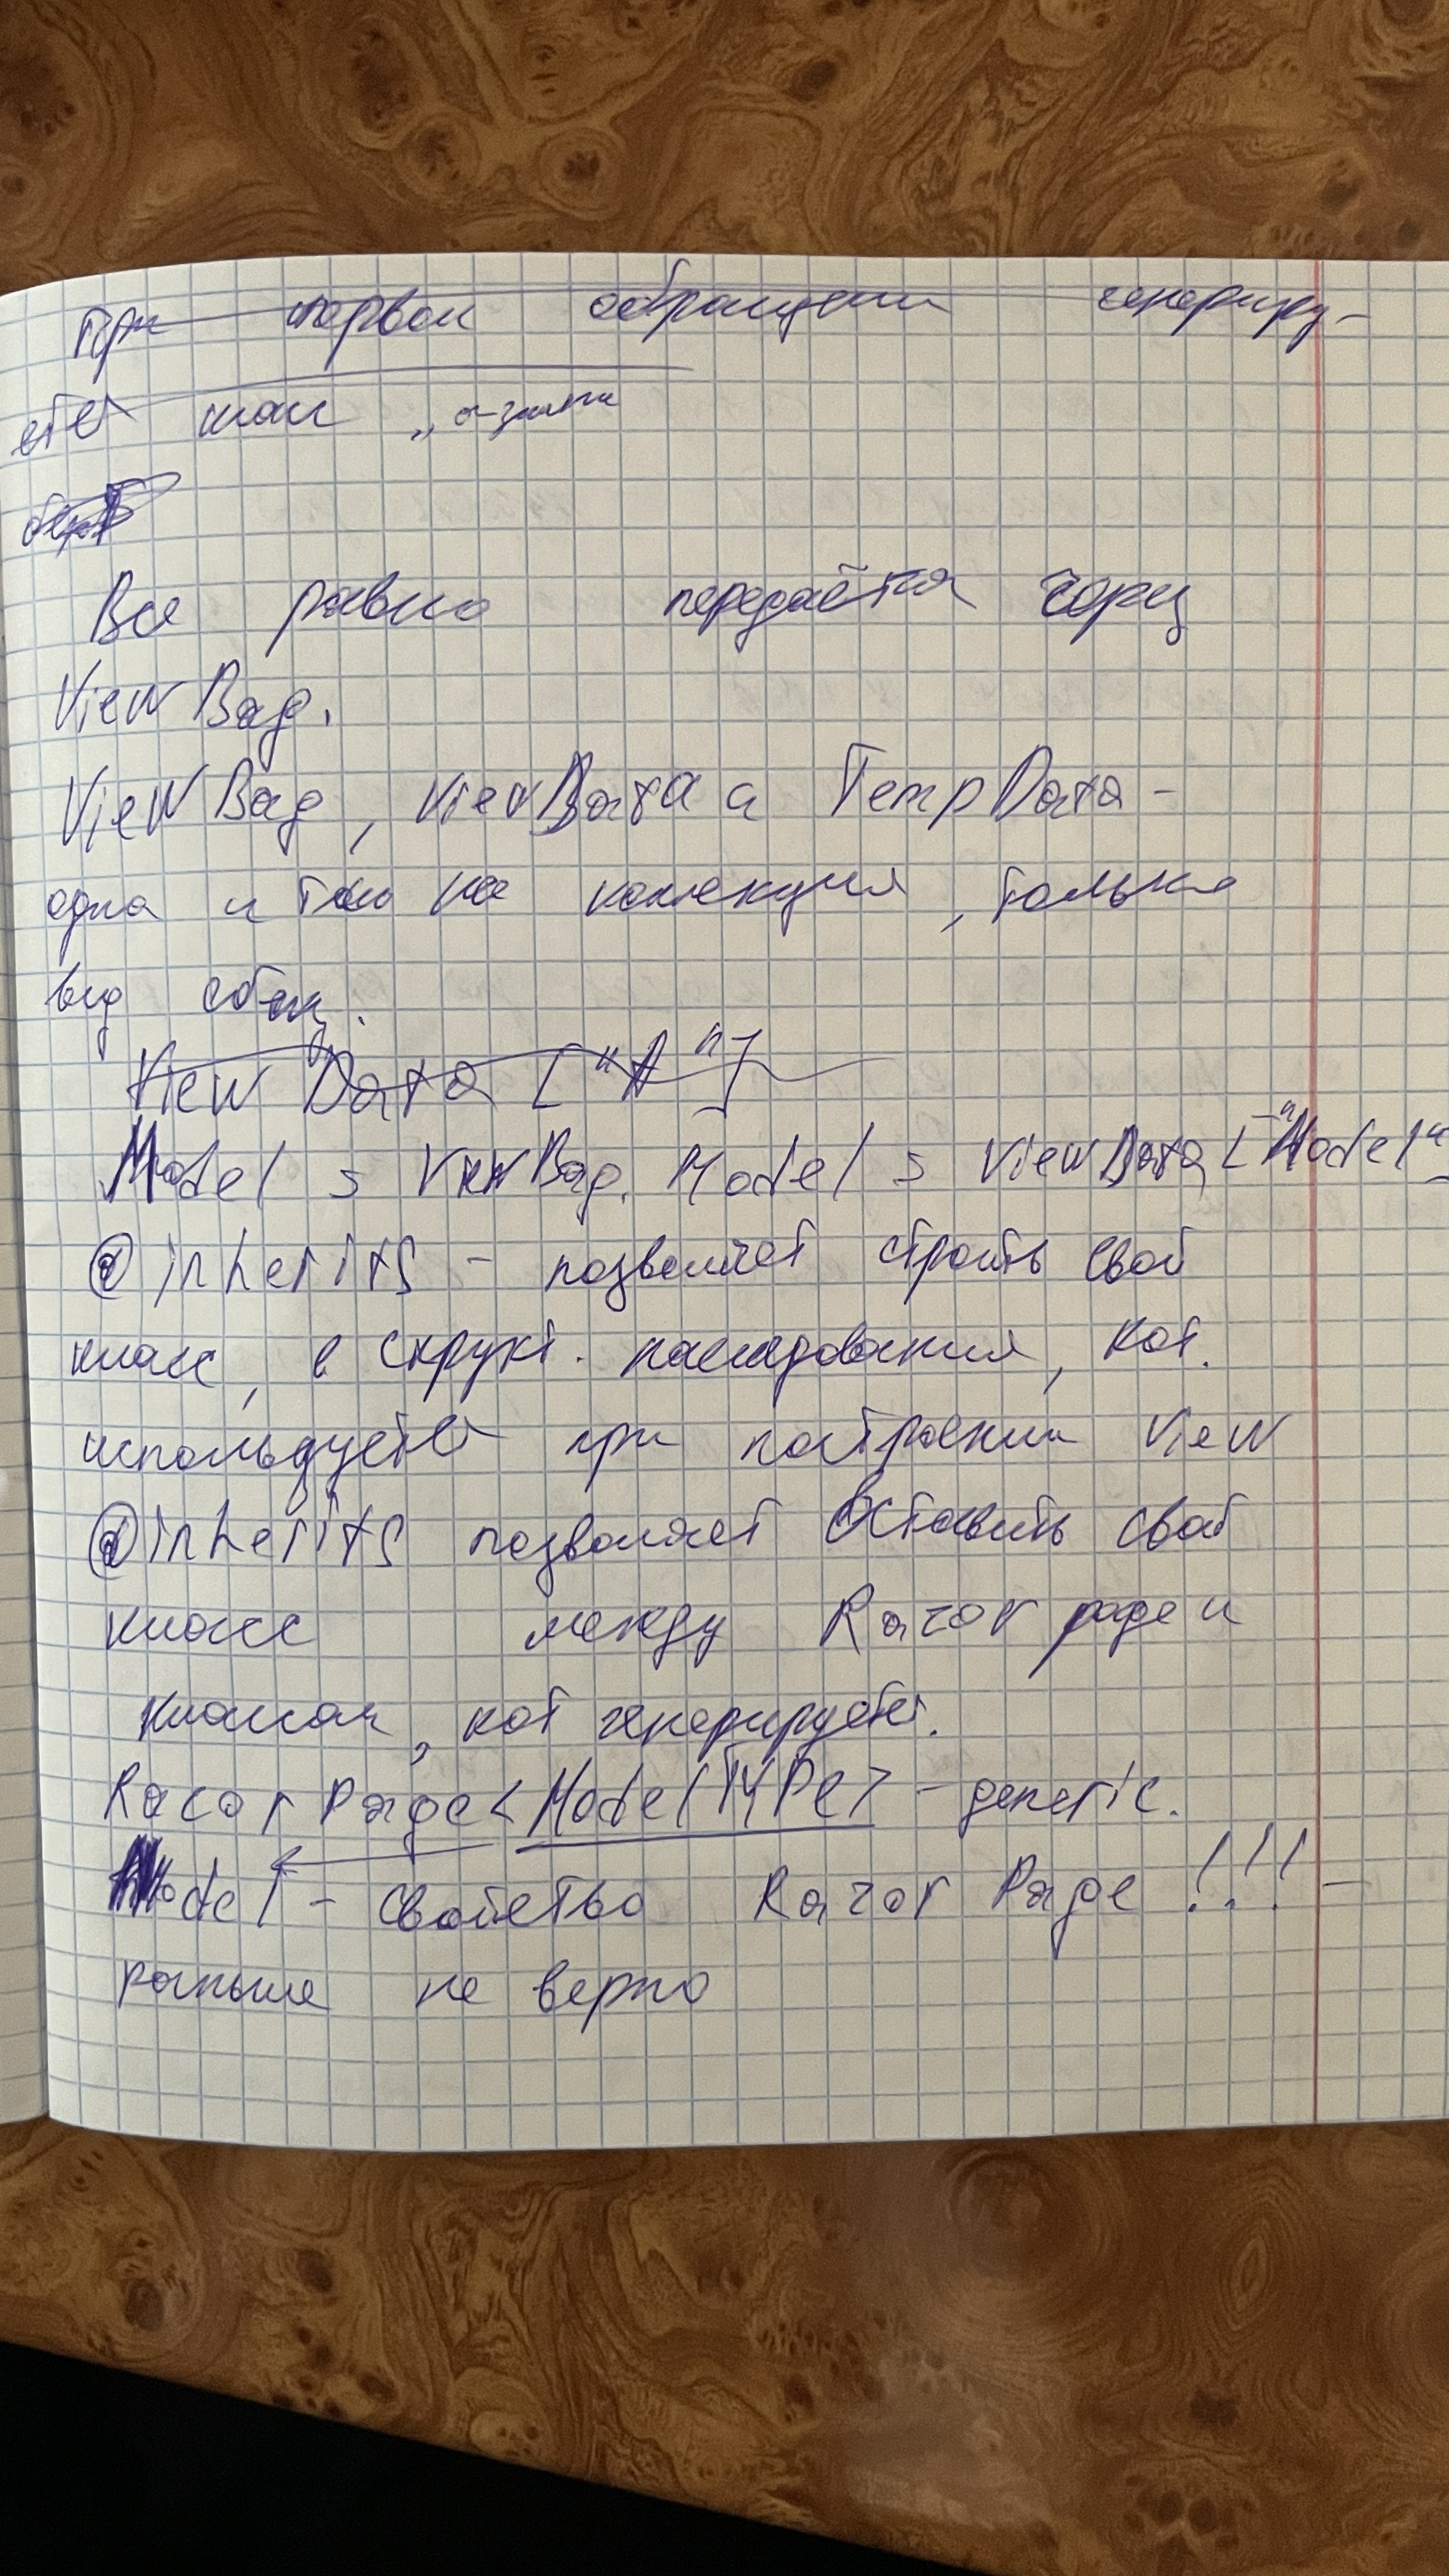 При первом обращении генериру-
ется класс
Все равно передаётся через
ViewBag.
ViewBag, ViewData и TempData -
одна и та же коллекция, только
вид
View Data ["A"]
Model = ViewBag. Model = ViewData ["Model"
@inherits - позволяет строить свой
класс, в наследования, кот.
используется при построении View
@inherits позволяет вставить свой
класс между Razor page и
классом, кот генерируется.
Razor Page<ModelTYPe> - generic.
Model - свойство Razor Page !!! -
раньше не верно